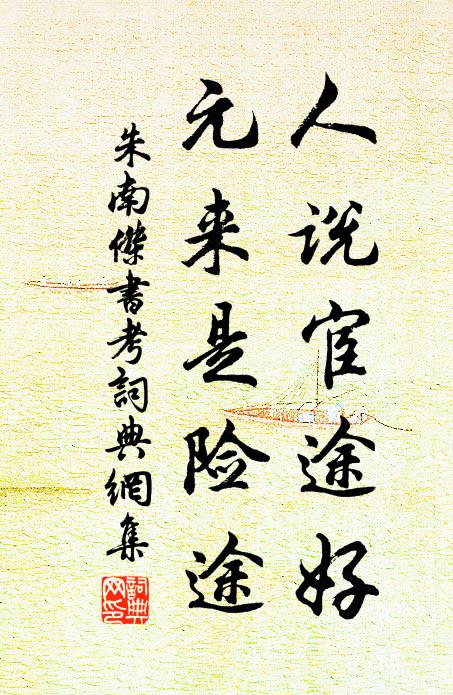 人说宦途好
元来是险途
朱南傑書考詞典網集